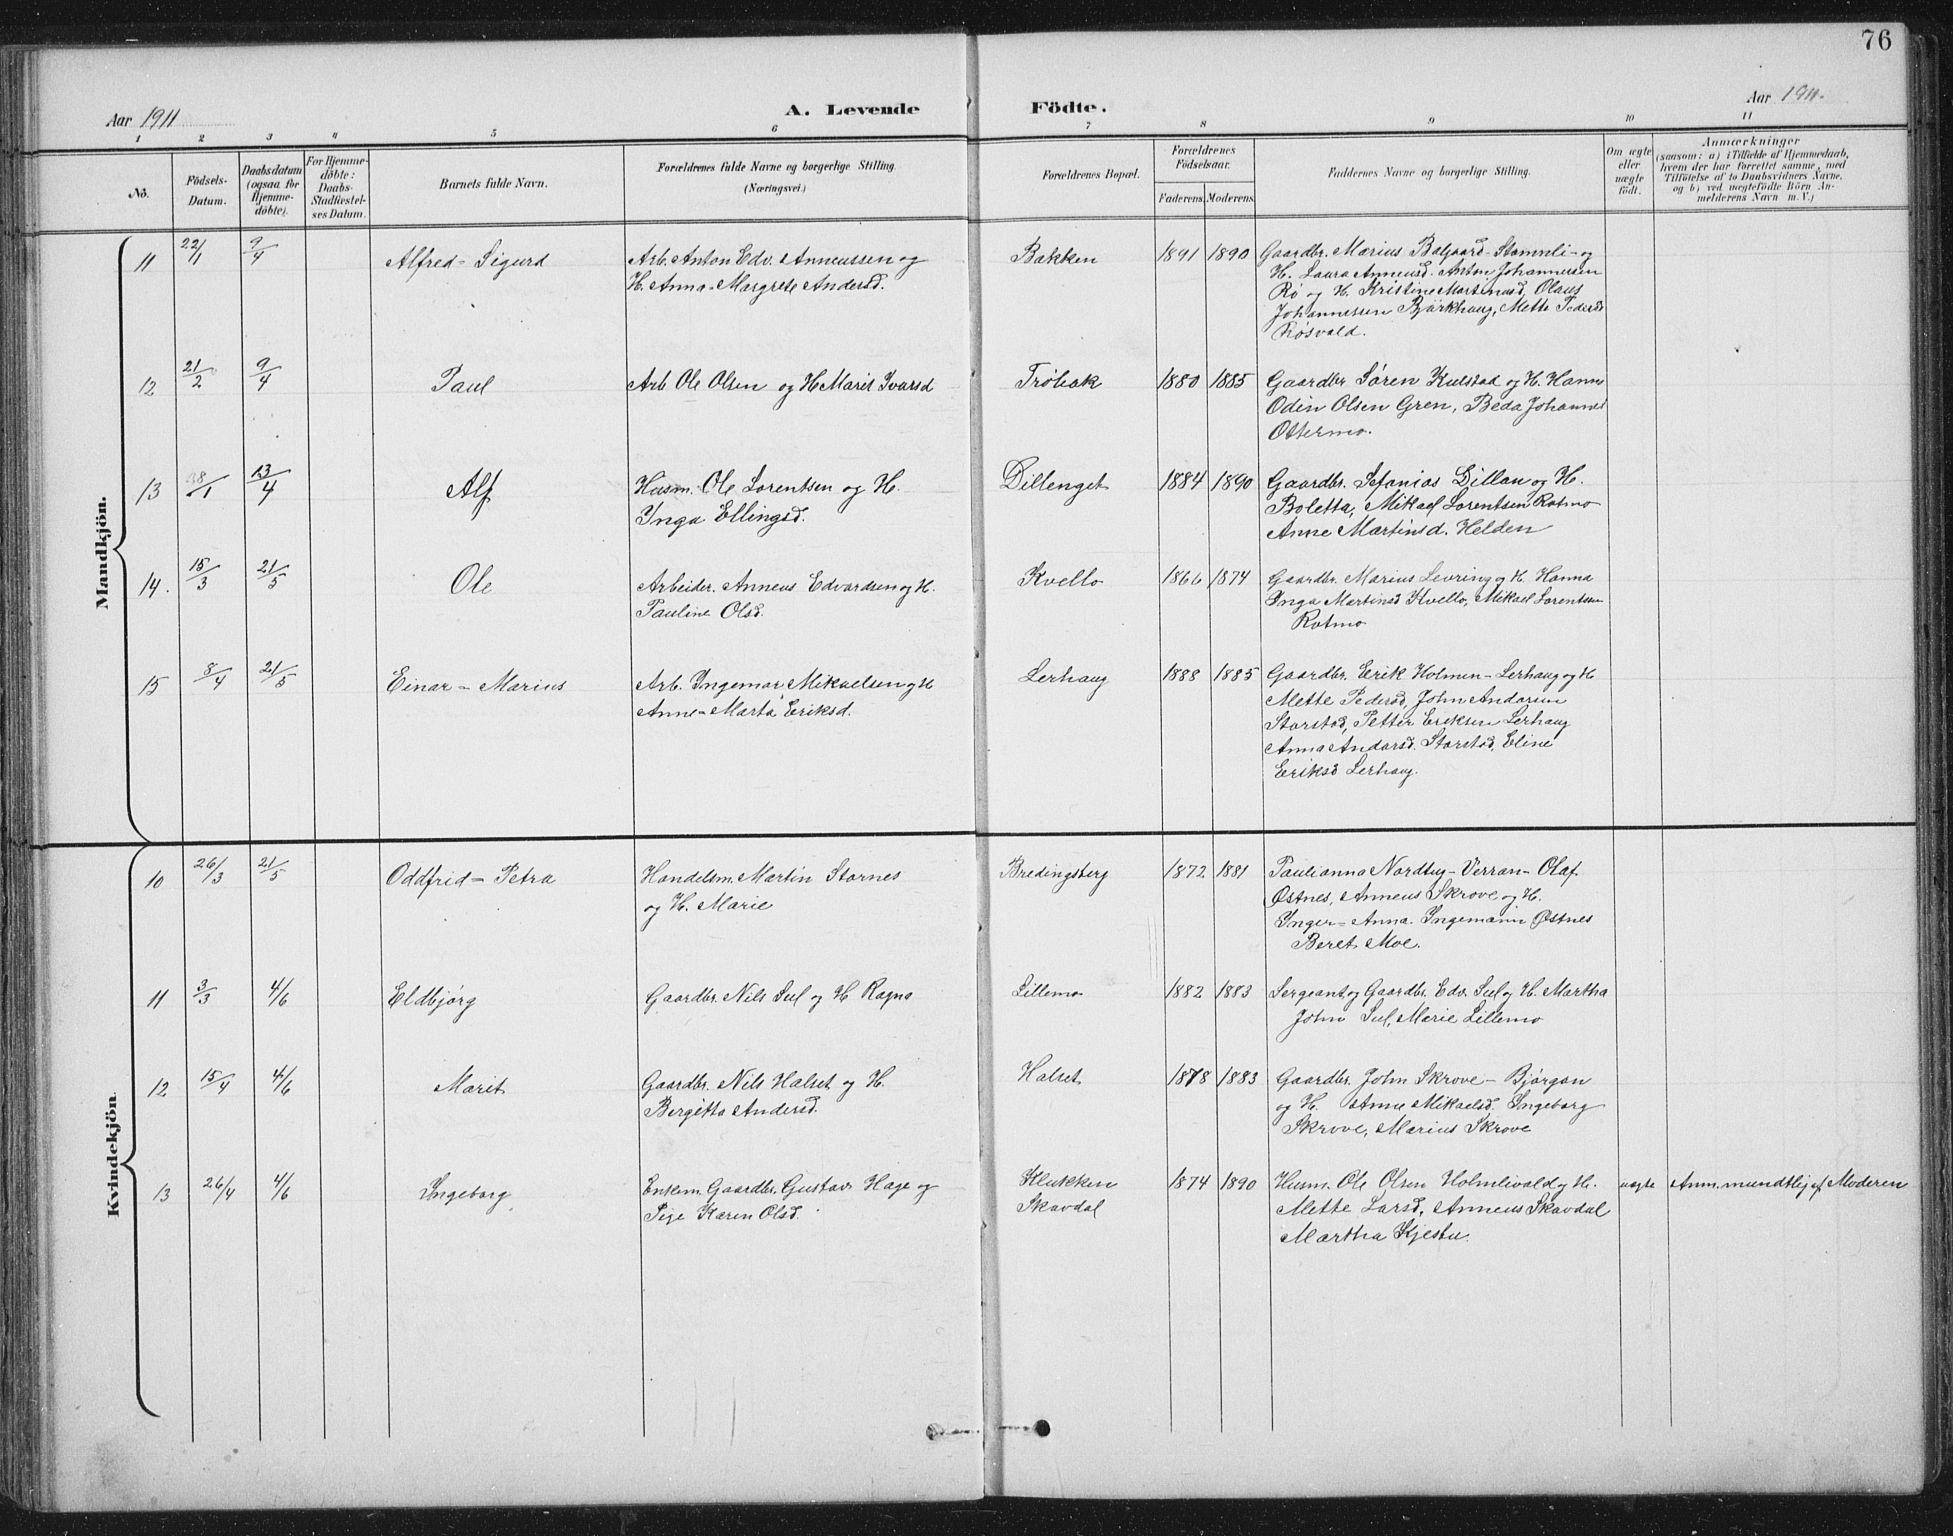 76
Aar 1911
A. Levende Födte.
Aar 1911.
1 2 3 4 5 6 7 8 9 10 11
No.
Födsels-
Datum.
Daabsdatum
(ogsaa for
Hjemme-
döbte).
For Hjemme-
döbte:
Daabs-
Stadfæstel-
ses Datum.
Barnets fulde Navn.
Forældrenes fulde Navne og borgerlige Stilling.
(Næringsvei.)
Forældrenes Bopæl.
Forældrenes
Födselsaar.
Faderens. Moderens.
Faddernes Navne og borgerlige Stilling.
Om ægte
eller
uægte
födt.
Anmærkninger
(saasom: a) i Tilfælde af Hjemmedaab,
hvem der har forrettet samme, med
Tilföielse af to Daabsvidners Navne,
og b) ved uægtefödte Börn An-
melderens Navn m. V.)
Mandkjön.
11 22/1 9/4 Alfred-Sigurd Arb. Anton Edv. Anneussen og Bakken 1891 1890 Gaardbr. Marius Balgaard-Stamnli-og
H. Anna-Margrete Andersd. H. Laura Anneusd. Anton Johannessen
Rø og H. Kristine Martinusd, Olaus
Johannessen Bjørkhaug, Mette Pedersd
Røsvald.
12 21/2 9/4 Paul Arb. Ole Olsen og H Marit Ivarsd Trøhok 1880 1885 Gaardbr Søren Kulstad og H. Hanna
Odin Olsen Gren, Beda Johannesd
Ottermo.
13 28/1 13/4 Alf Husm. Ole Lorentsen og H. Dillenget 1884 1890 Gaardbr. Sefanias Dillan og H.
Inga Ellingsd. Boletta, Mikael Lorentsen Rotmo
Anne Martinsd. Helden
14. 15/3 21/5 Ole Arbeider. Anneus Edvardsen og H. Kvello 1866 1874 Gaardbr. Marius Levring og H. Hanna
Pauline Olsd. Inga Martinsd Kvello, Mikael Lorentsen
Rotmo
15 8/4 21/5 Einar-Marius Arb. Ingemar Mikaelsen og H Lerhaug 1888 1885 Gaardbr. Erik Holmen-Lerhaug og H
Anne-Marta Eriksd. Mette Pedersd, John Andersen
Storstad, Petter Eriksen Lerhaug
Anna Andersd. Storstad, Eline
Eriksd Lerhaug.
Kvindekjön.
10 26/3 21/5 Oddfrid-Petra Handelsm. Martin Stornes Bredingsberg 1872 1881 Paulianna Nordtug-Verran-Olaf
og H. Marie Østnes, Anneus Skrove og H.
Inger-Anna. Ingemann Østnes
Beret Moe.
11 3/3 4/6 Eldbjørg Gaardbr. Nils Sul og H Ragna Lillemo 1882 1883 Sergeant og Gaardbr. Edv. Sul og H. Martha
John Sul, Marie Lillemo
12 15/4 4/6 Marit Gaardbr. Nils Halset og H. Halset 1878 1883 Gaardbr. John Skrove-Bjørgan
Bergitta Andersd. og H. Anne Mikaelsd. Ingeborg
Skrove, Marius Skrove
13 26/4 4/6 Ingeborg Enkem. Gaardbr. Gustav Hage og Klukken 1874 1890 Husm. Ole Olsen Holmlivald og H. uægte Anm. mundtlig af Moderen
Pige Karen Olsd. Skavdal Mette Larsd, Anneus Skavdal
Martha Kjestu.